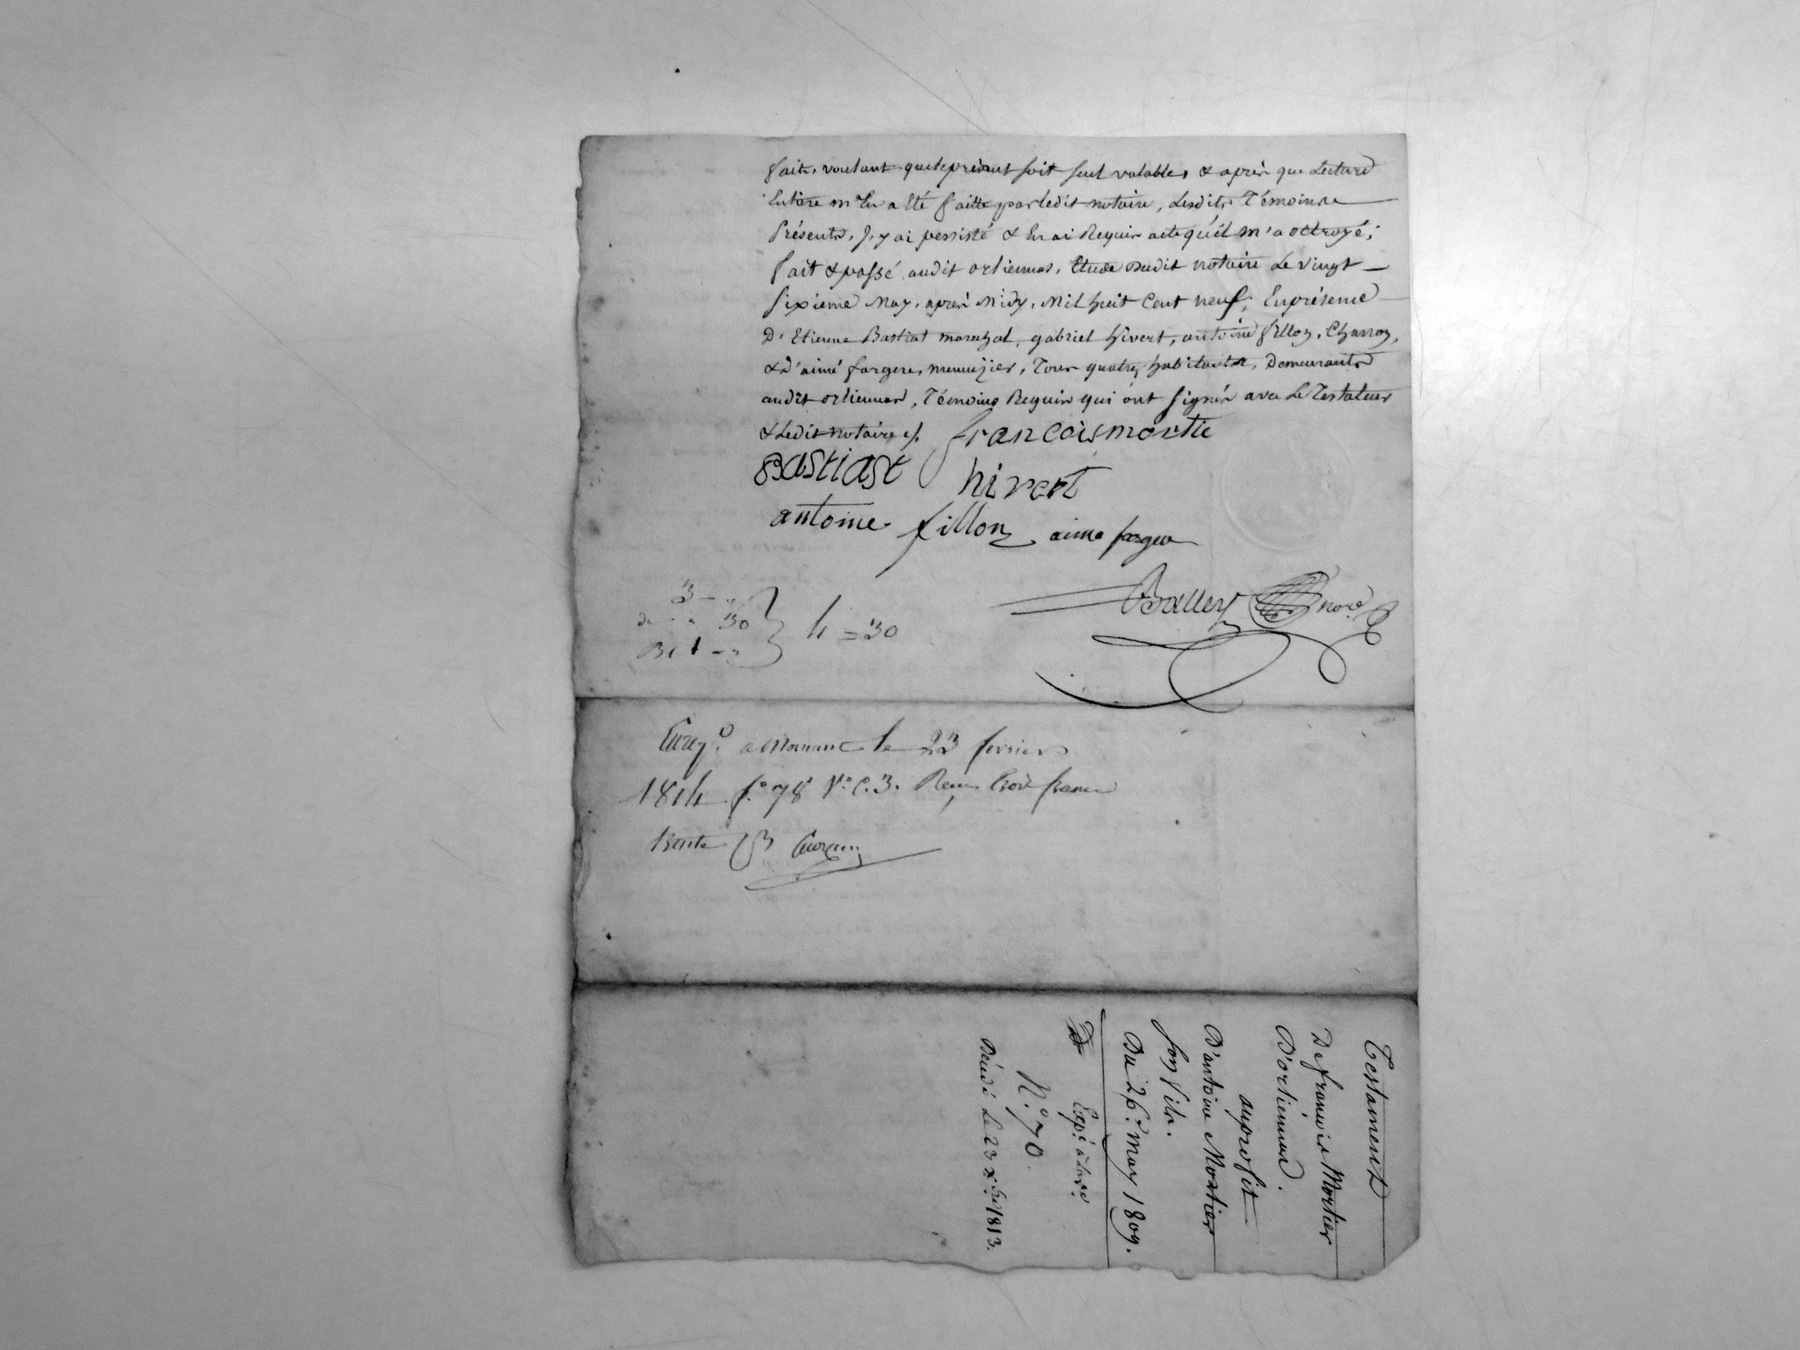 faits, voulant que le présent soit seul valable, & après que Lecture
Entière m'En a été faitte par ledit notaire, Lesdits Témoins
Présents, J'y ai persisté & En ai Requis acte qu'il m'a octroyé;
fait & passé audit orliennas, Etude dudit notaire Le vingt
sixième May, après Midy, Mil huit Cent neuf; En présence
D'Etienne Bastiat marechal, gabriel hivert, antoine fillon, Charron,
& d'aimé fargere, menuizier, Tous quatre habitants, Demeurants
audit orliennas, Témoins Requis qui ont signés avec Le Testateur
& Ledit notaire ./.
francois mortie
Bastiast hivert
antoine fillon aime fargere
Balley nore
3 - "
30
4 = 30
Enregé. a Mornant le 23 fevrier
1814 f.º 78 Vº C. 3. Recu trois francs
Testament
De francois Mortier
D'orliennas.
au profit
D'antoine Mortier
son fils.
Du 26.e May 1809.
Exp.é
N.º 70.
Décédé Le 23 Xbre 1813.